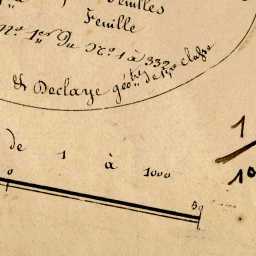 Feuilles
Feuille
N.º 1.er Du N.º 1 à 339
Declaye géo.tre de 1.ère classe
de 1 à 1000
0 50
1
10